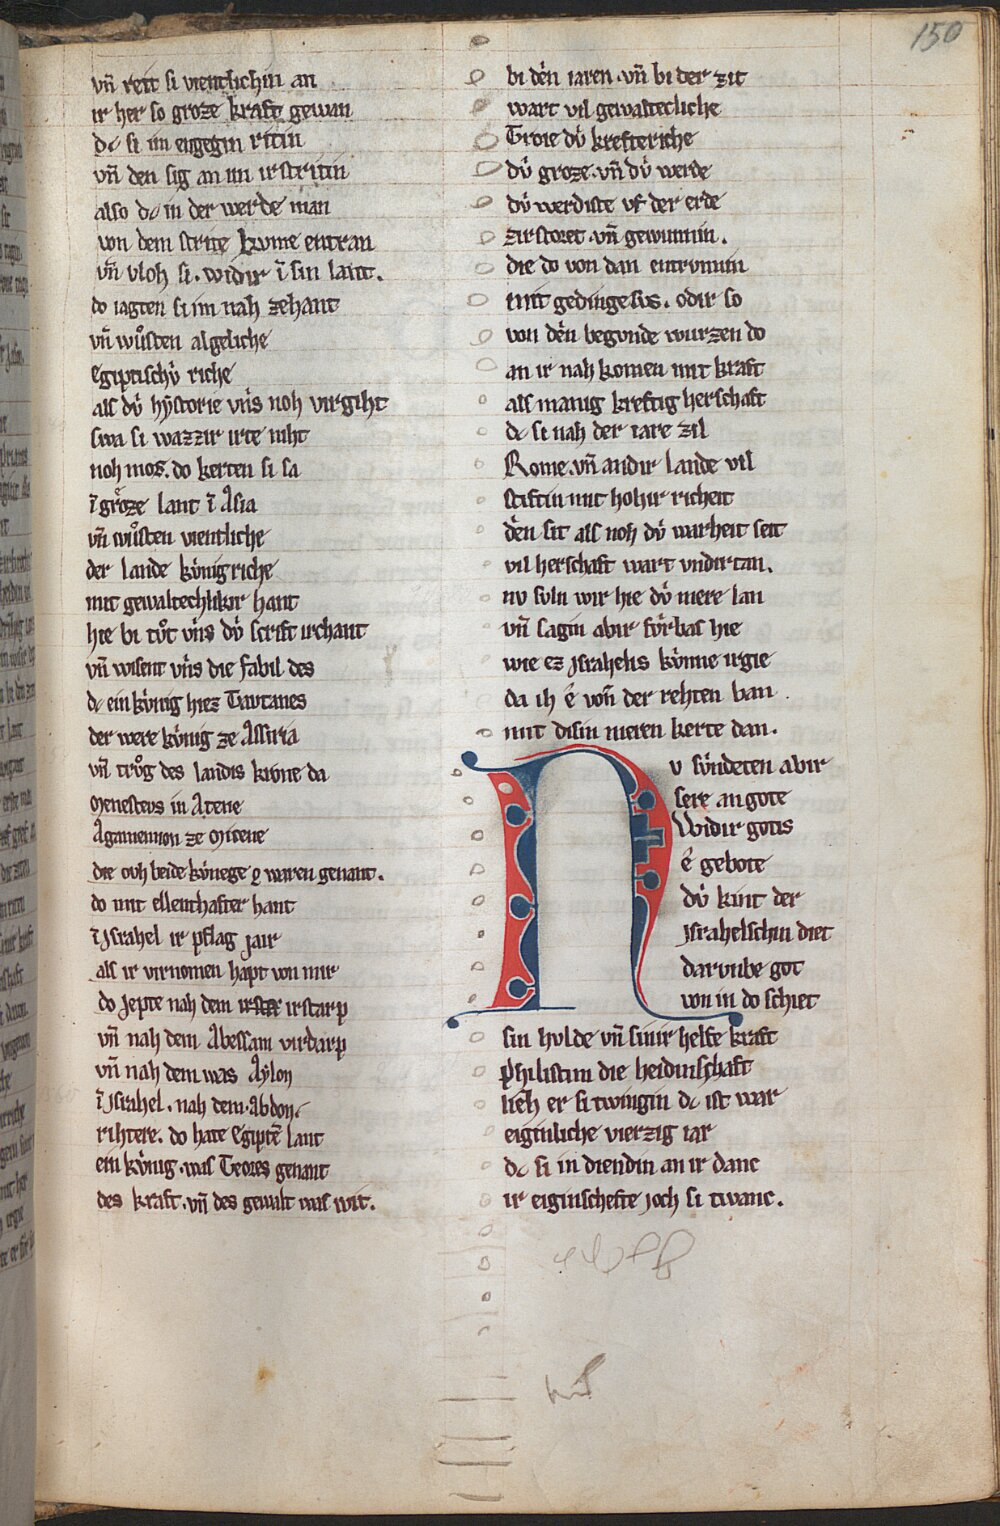 150
vn̄ reit si vientlichin an
ir her so groze kraft gewan
dc si im engegin ritin
vn̄ den sig an im irstritin
also dc in der werde man
von dem strite kvme entran
vn̄ vloh si. widir ī sin lant.
do iagten si im nah zehant
vn̄ wůsten algeliche
Egiptischv̍ riche
als dv̍ hẏstorie vn̍s noh virgiht
swa si wazzir irte niht
noh mos. do kerten si sa
ī groͤze lant ī Asia
vn̄ wůsten vientliche
der lande kv̍nigriche
mit gewaltechlichir hant
hie bi tůt vn̍s dv̍ scrift irchant
vn̄ wisent vn̍s die fabil des
dc ein kv̍nig hiez Tavtanes
der were kv̍nig ze Assiria
vn̄ trv̊g des landis krone da
Menestevs in Atene
Agamemnon ze Mitene
die ovh beide kv̍nege waren genant.
do mit ellenthafter hant
ī Israhel ir pflag Jair
als ir virnomen hapt von mir
do Jepte nah dem irstarp
vn̄ nah dem Abessam virdarp
vn̄ nah dem was Aylon
ī Jsrahel. nah dem. Abdon.
rihtere. do hate Egiptē lant
ein kv̍nig. was Teores genant
des kraft. vn̄ des gewalt was wit.
bi den iaren. vn̄ bi der zit
wart vil gewaltecliche
Troie dv̍ krefteriche
dv̍ groze. vn̄ dv̍ werde
dv̍ werdiste vf der erde
zirstoret. vn̄ gewunnin.
die do von dan entrvnnin
mit gedinge svs. odir so
von den begvnde wurzen do
an ir nah komen mit kraft
als manig kreftig herschaft
dc si nah der iare zil
Rome. vn̄ andir lande vil
stiftin mit hohir richeit
den sit als noh dv̍ warheit seit
vil herschaft wart vndirtan.
nv svln wir hie dv̍ mere lan
vn̄ sagin abir fv̍rbas hie
wie ez Jsrahelis kv̍nne irgie
da ih ê von der rehten ban
mit disin meren kerte dan.
Nv sv̍ndeten abir
sere an gote
Widir gotis
ê gebote
dv̍ kint der
Jsrahelschin diet
darvmbe got
von in do schiet
sin hvlde vn̄ sinir helfe kraft
Philistim die heidinschaft
lieh er si twingin dc ist war
eiginliche vierzig iar
dc si in diendin an ir danc
ir eiginschefte joch si twanc.